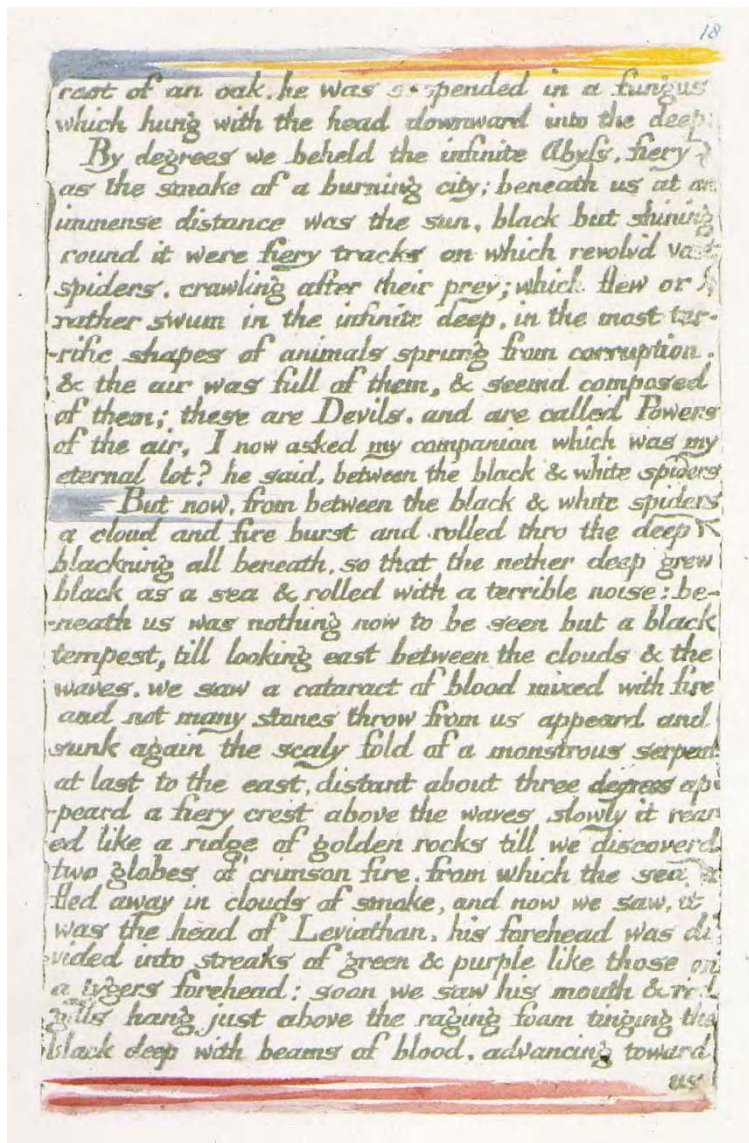 18
root of an oak. he was suspended in a fungus
which hung with the head downward into the deep:
By degrees we beheld the infinite Abyss, fiery
as the smoke of a burning city; beneath us at an
immense distance was the sun, black but shining
round it were fiery tracks on which revolv'd vast
spiders, crawling after their prey; which flew or
rather swum in the infinite deep, in the most ter-
-rific shapes of animals sprung from corruption.
& the air was full of them, & seemd composed
of them; these are Devils. and are called Powers
of the air, I now asked my companion which was my
eternal lot? he said, between the black & white spiders
But now, from between the black & white spiders
a cloud and fire burst and rolled thro the deep
blackning all beneath, so that the nether deep grew
black as a sea & rolled with a terrible noise: be-
-neath us was nothing now to be seen but a black
tempest, till looking east between the clouds & the
waves, we saw a cataract of blood mixed with fire
and not many stones throw from us appeard and
sunk again the scaly fold of a monstrous serpent
at last to the east, distant about three degrees ap-
-peard a fiery crest above the waves slowly it rear-
ed like a ridge of golden rocks till we discoverd
two globes of crimson fire. from which the sea
fled away in clouds of smoke, and now we saw, it
was the head of Leviathan. his forehead was di-
vided into streaks of green & purple like those on
a tygers forehead: soon we saw his mouth & red
gills hang just above the raging foam tinging the
black deep with beams of blood, advancing toward
us